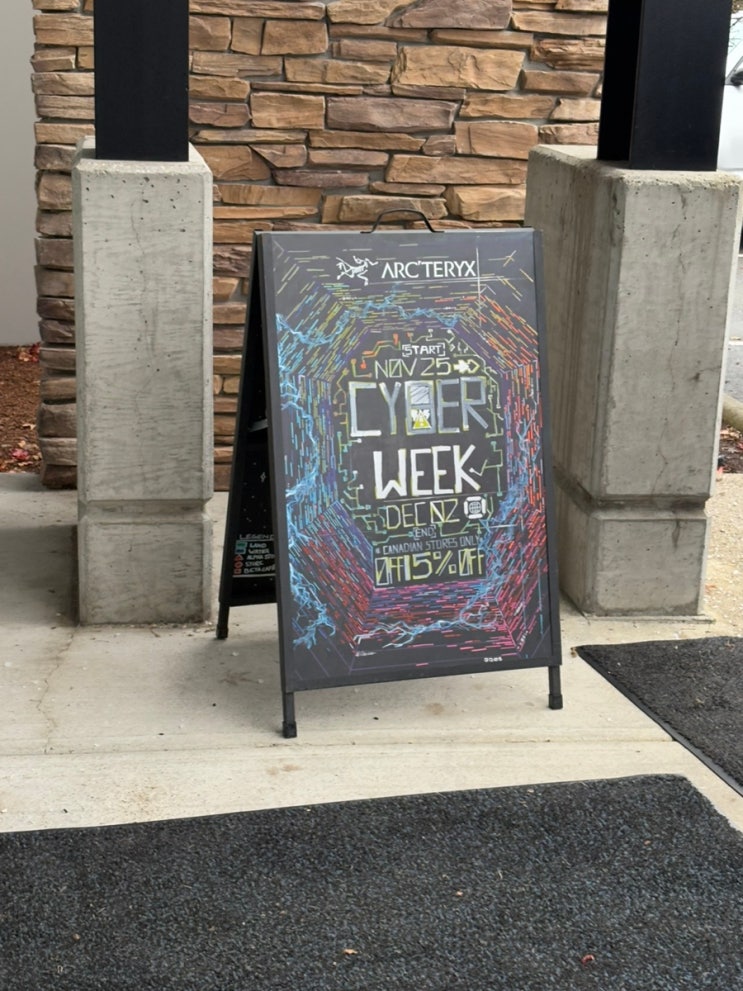 ARC'TERYX
START
NOV 25
CYBER
WEEK
DEC 02
END
* CANADIAN STORES ONLY
OFF 15% OFF
LEGEND
LAND
WATER
STORE